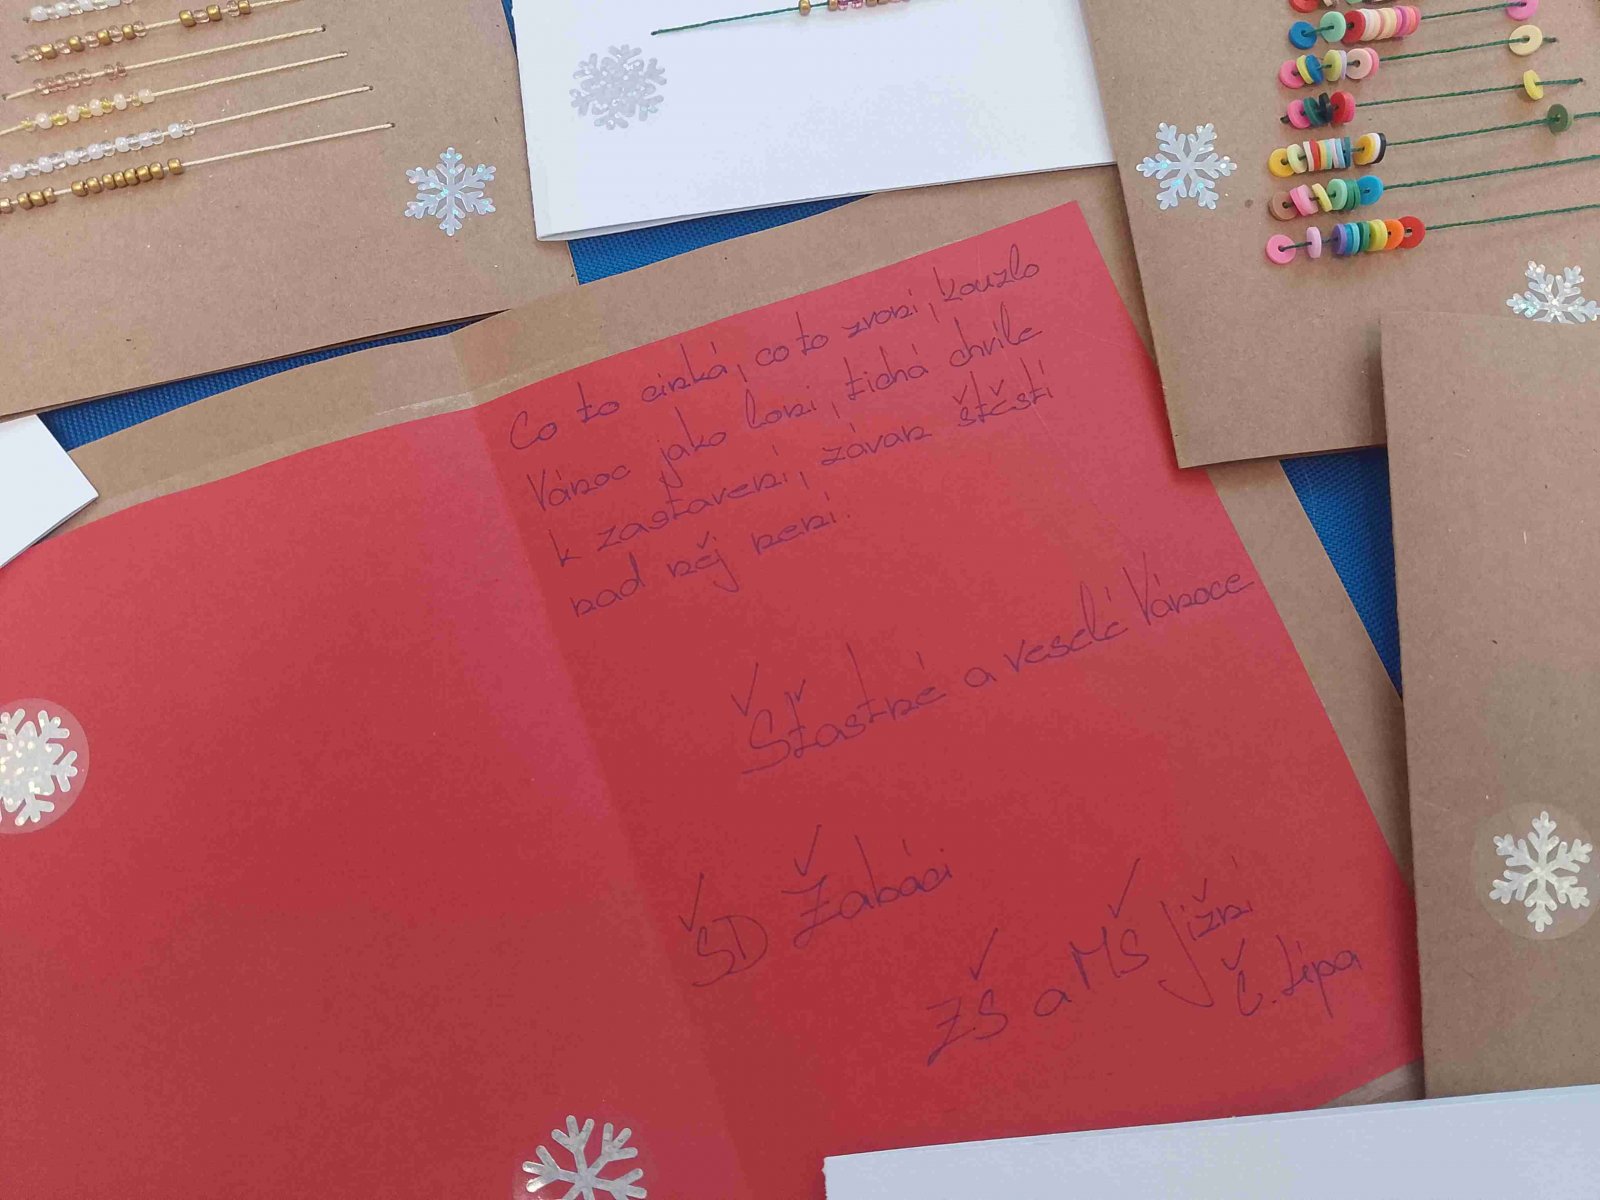 Co to cinká, co to zvoní, kouzlo
Vánoc jako loni, tichá chvíle
k zastavení, závan štěstí
nad něj není.
Šťastné a veselé Vánoce
ŠD Žabáci
ZŠ a MŠ Jižní
Č. Lípa